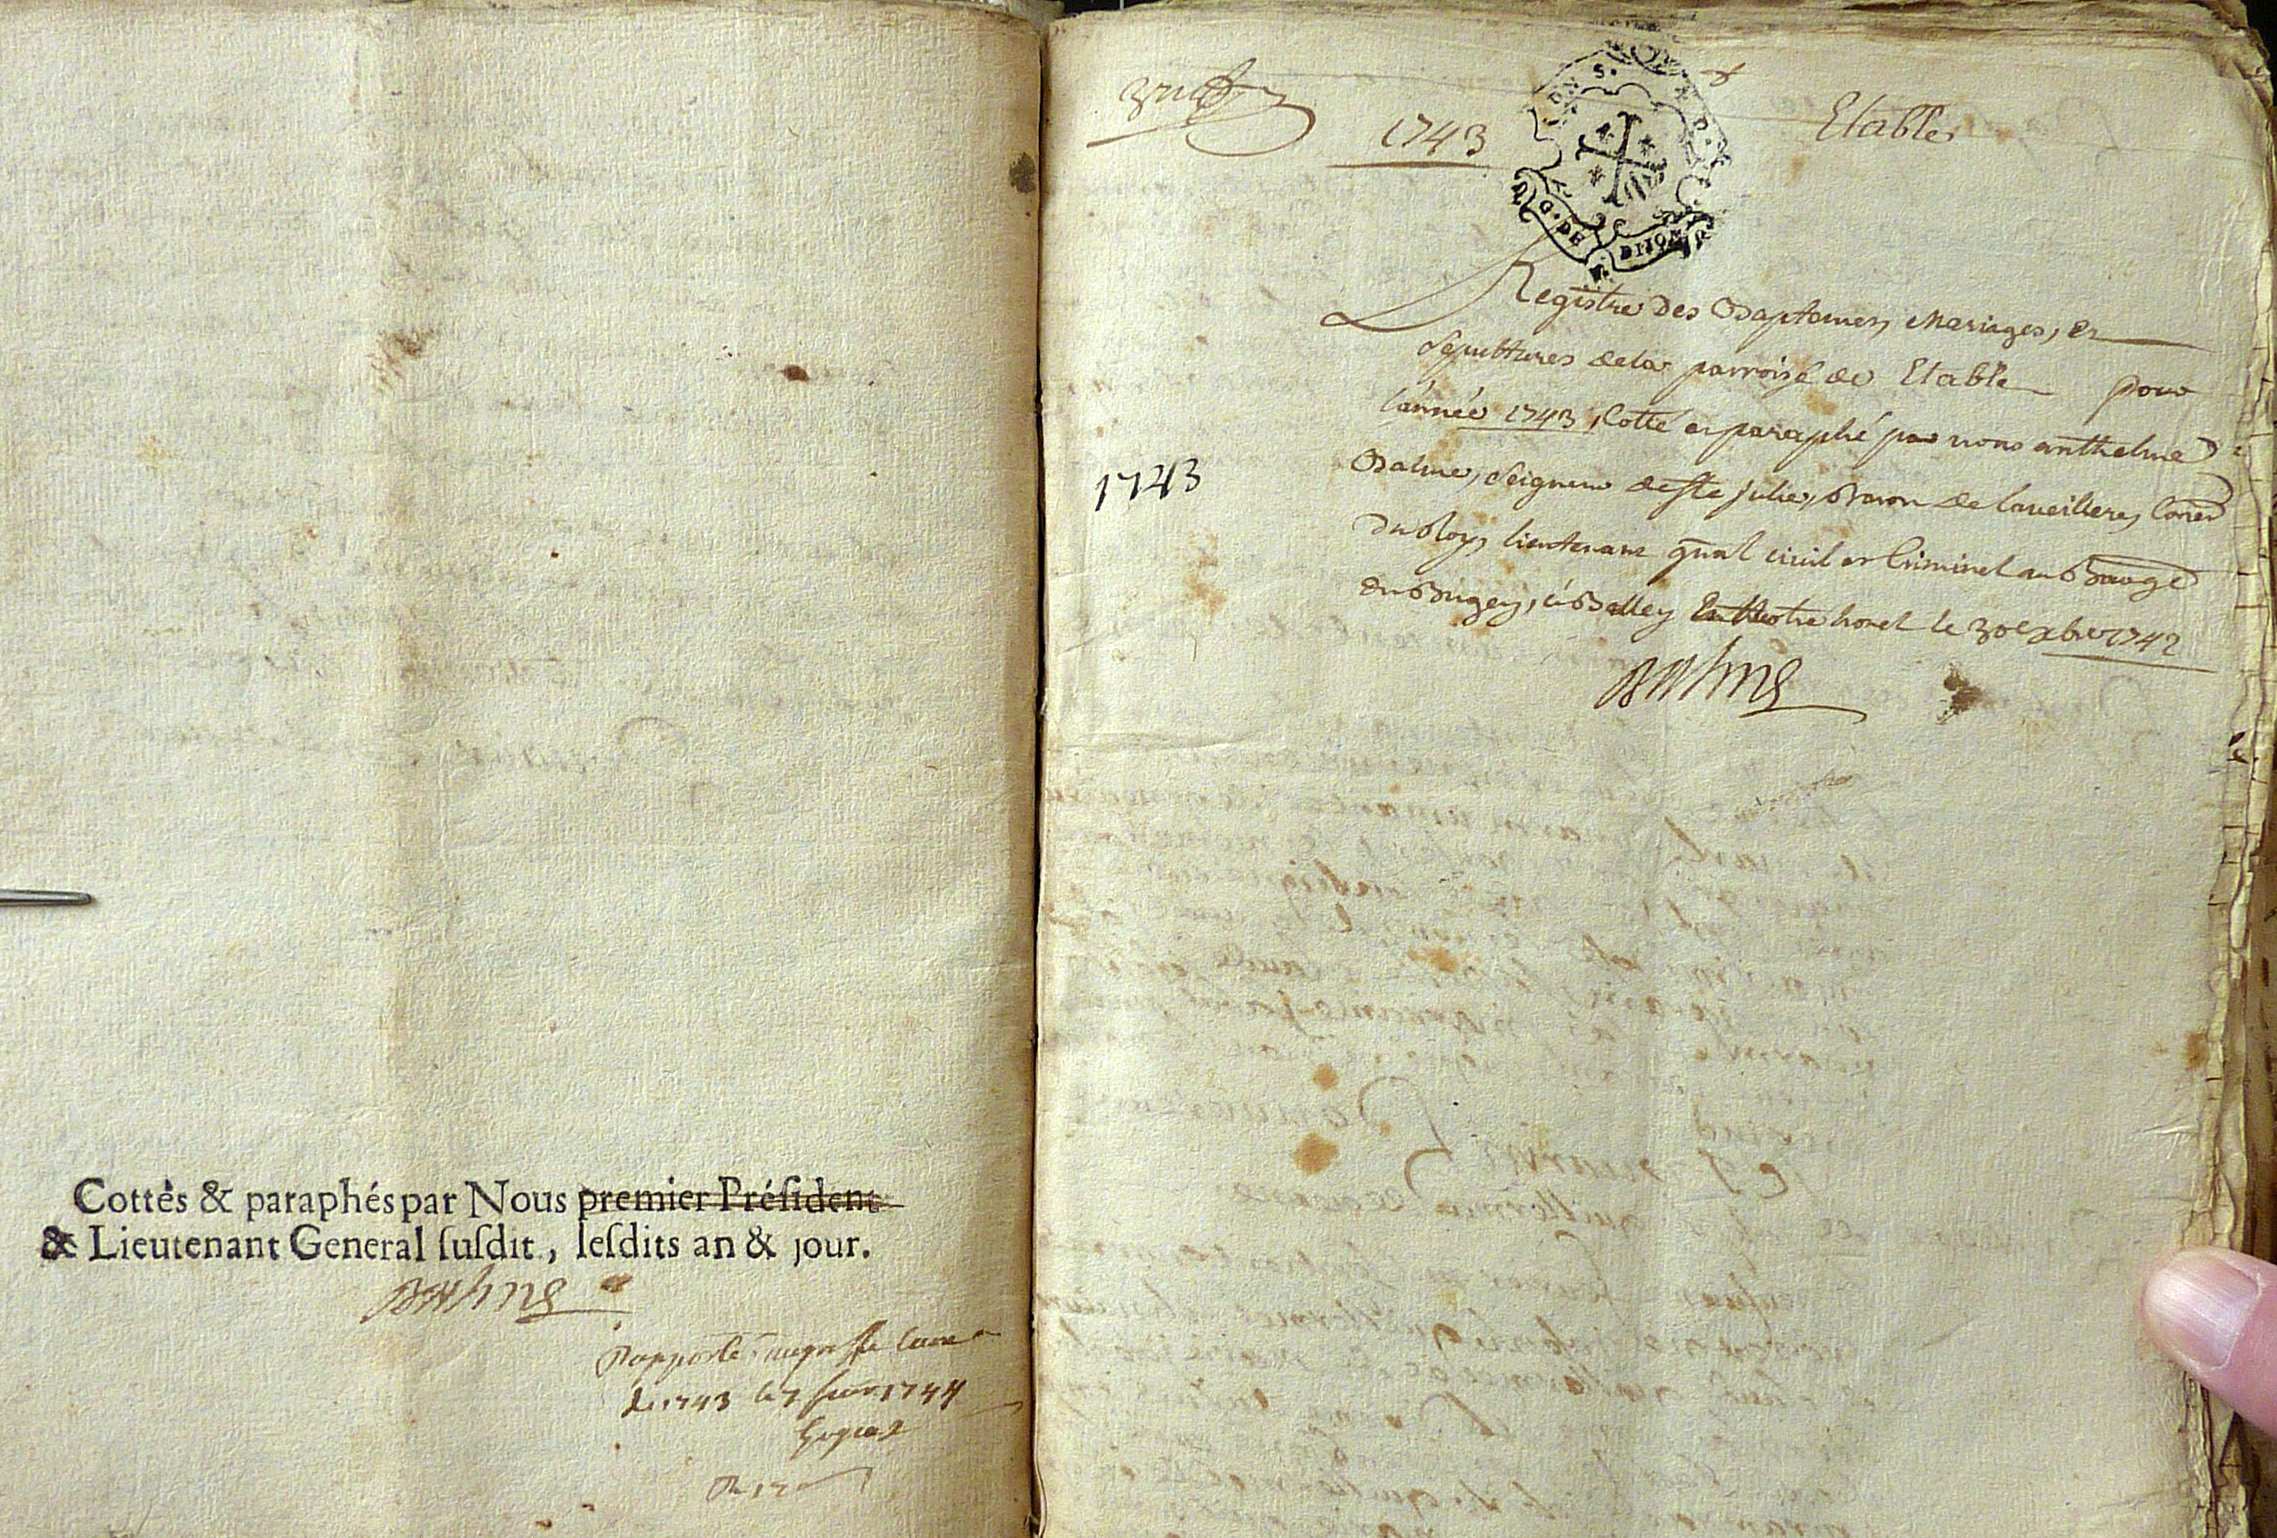 Cottès & paraphés par Nous premier Présıdent
& Lieutenant General susdit, lesdits an & jour.
Balme
Rapporté au greffe
de 1743 le 7 1744
1743
Etable
Registre des Baptemes, Mariages, et
sepultures de la parroisse de Etable pour
l'année 1743, Cotté et paraphé par nous anthelme
Balme, seigneur de ste julie, Baron de Conër
du Roy, lieutenant gnâl civil et Criminel au Bauge
du Bugey, à Belley En Nostre hotel le 30e xbre 1742
Balme
1743